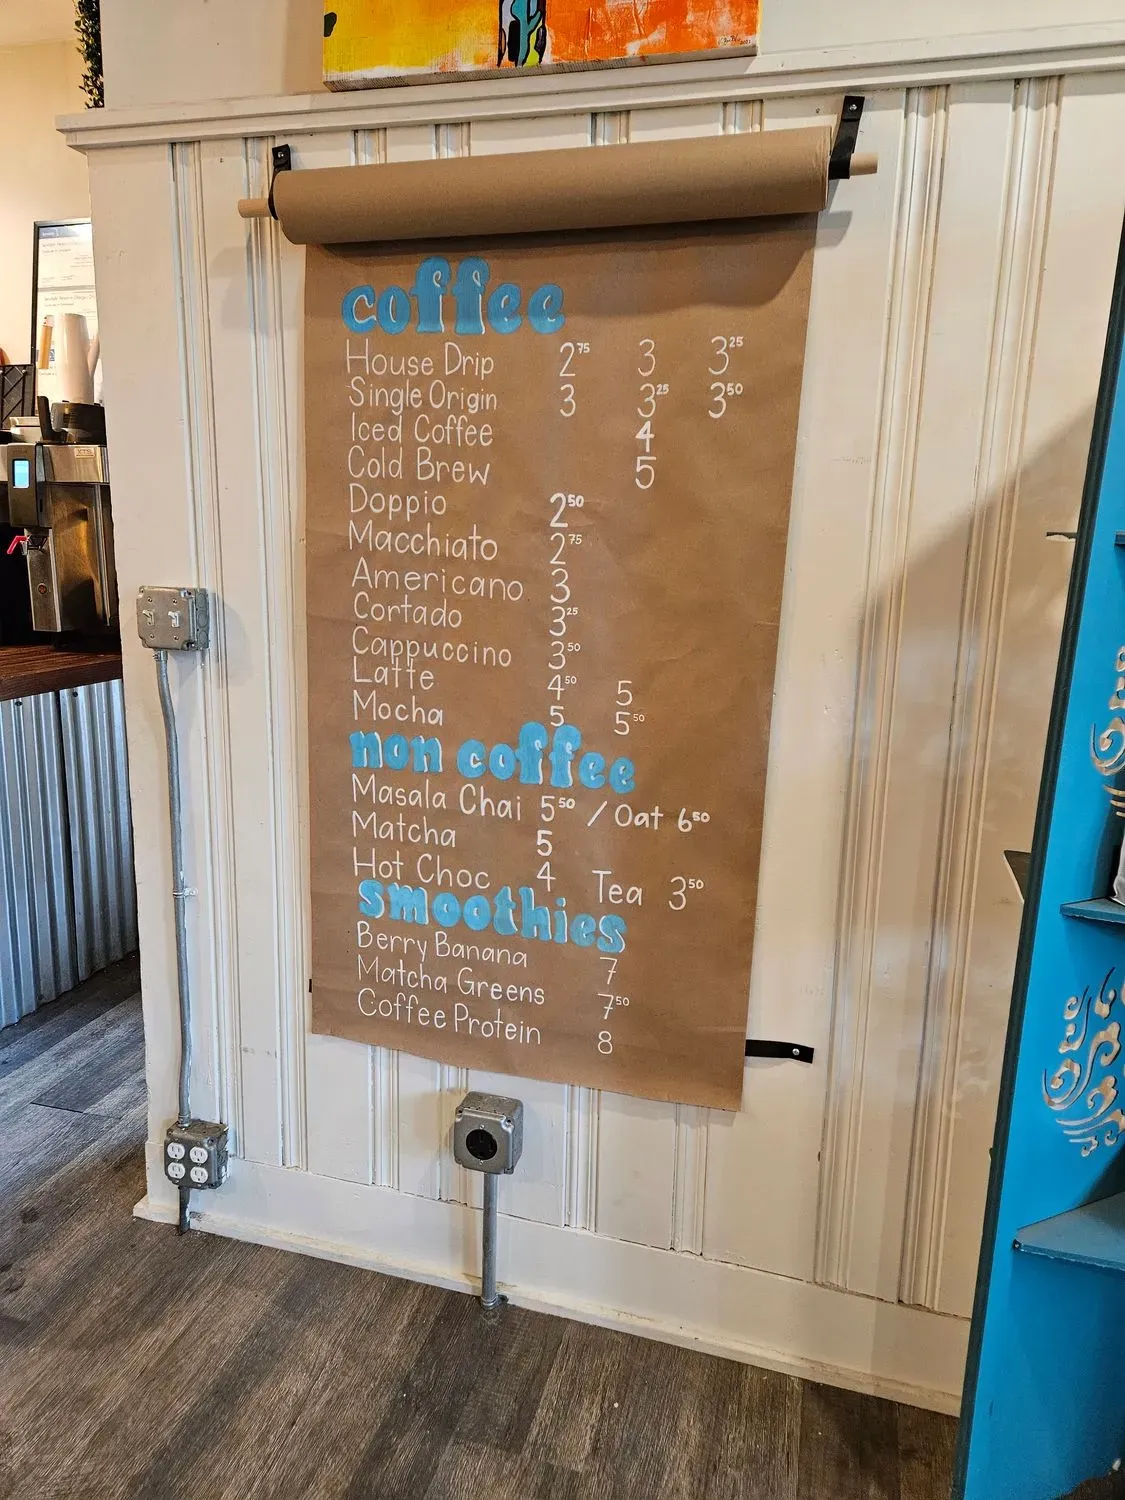 coffee
House Drip 2⁷⁵ 3 3²⁵
Single Origin 3 3²⁵ 3⁵⁰
Iced Coffee 4
Cold Brew 5
Doppio 2⁵⁰
Macchiato 2⁷⁵
Americano 3
Cortado 3²⁵
Cappuccino 3⁵⁰
Latte 4⁵⁰ 5
Mocha 5 5⁵⁰
non coffee
Masala Chai 5⁵⁰ / Oat 6⁵⁰
Matcha 5
Hot Choc 4 Tea 3⁵⁰
smoothies
Berry Banana 7
Matcha Greens 7⁵⁰
Coffee Protein 8